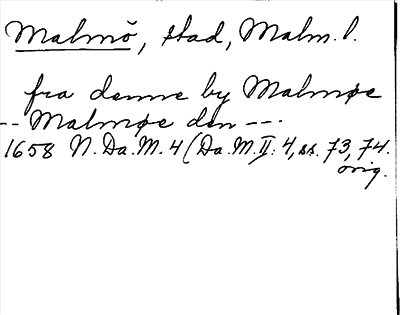 Malmö, stad, Malm. l.
fra denne by Malmøe
-- Malmøe den ---.
1658 N. Da. M. 4 (Da. M. II: 4, ss. 73, 74.
orig.